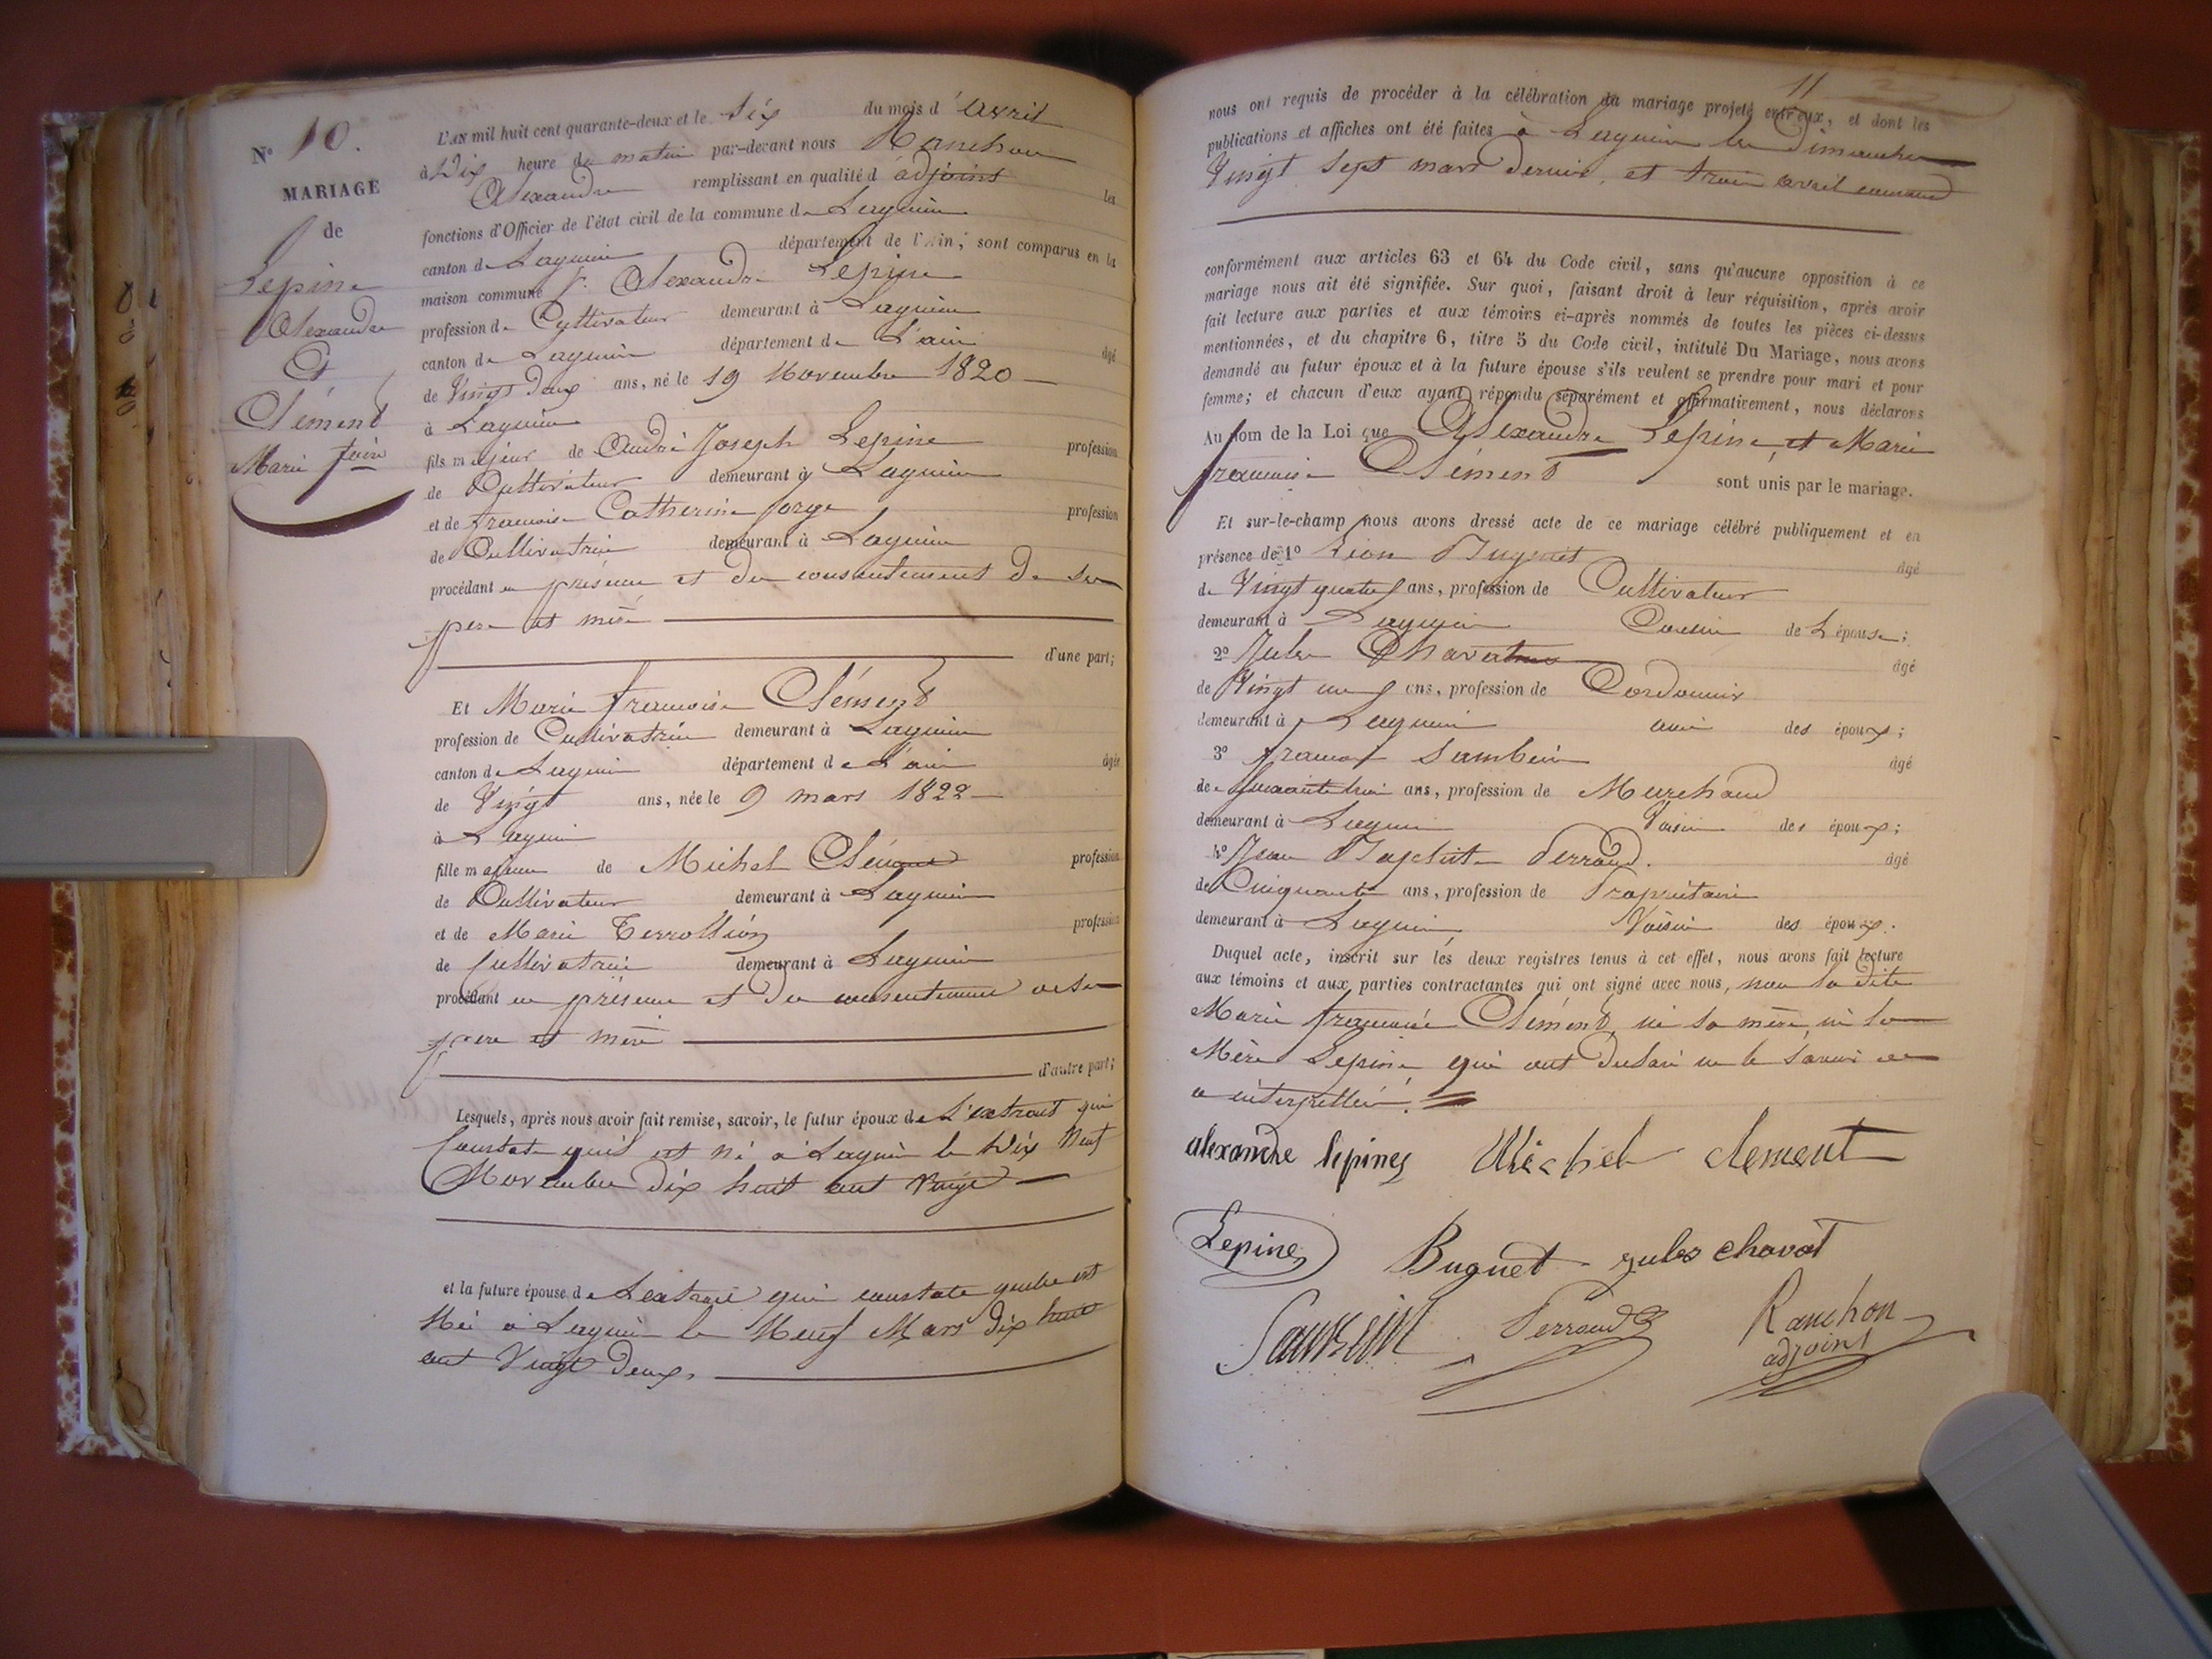 N° 10.
MARIAGE
de
Lepine
Alexandre
Et
Clément
Marie fçoise
L'AN mil huit cent quarante-deux et le Six du mois d'avril
à Dix heure du matin par-devant nous Ranchon
Alexandre remplissant en qualité d'adjoint les
fonctions d'Officier de l'état civil de la commune de Lagnieu
canton de Lagnieu département de l'Ain, sont comparus en la
maison commune Alexandre Lepine
profession de Cultivateur demeurant à Lagnieu
canton de Lagnieu département de L'ain âgé
de Vingt Deux ans, né le 19 Novembre 1820
à Lagnieu
fils majeur de André Joseph Lepine profession
de Cultivateur demeurant à Lagnieu
et de francoise Catherine forge profession
de Cultivatrice demeurant à Lagnieu
procédant en présence et du consentement de ses
pere et mère
d'une part;
Et Marie francoise Clément
profession de Cultivatrice demeurant à Lagnieu
canton de Lagnieu département de L'ain âgée
de Vingt ans, née le 9 mars 1822
à Lagnieu
fille majeure de Michel Clément profession
de Cultivateur demeurant à Lagnieu
et de Marie profession
de Cultivatrice demeurant à Lagnieu
procédant en présence et du consentement de ses
pere et mère
d'autre part;
Lesquels, après nous avoir fait remise, savoir, le futur époux de L'extrait qui
Constate quil est né à Lagnieu le Dix Neuf
Novembre dix huit cent vingt
et la future épouse de Lextrait qui constate quelle est
Née à Lagnieu le Neuf Mars dix huit
cent Vingt Deux.
11
nous ont requis de procéder à la célébration du mariage projeté entr'eux, et dont les
publications et affiches ont été faites à Lagnieu les Dimanches
Vingt Sept mars Dernier, et trois avril courant
conformément aux articles 63 et 64 du Code civil, sans qu'aucune opposition à ce
mariage nous ait été signifiée. Sur quoi, faisant droit à leur réquisition, après avoir
fait lecture aux parties et aux témoins ci-après nommés de toutes les pièces ci-dessus
mentionnées, et du chapitre 6, titre 5 du Code civil, intitulé Du Mariage, nous avons
demandé au futur époux et à la future épouse s'ils veulent se prendre pour mari et pour
femme; et chacun d'eux ayant répondu séparément et affirmativement, nous déclarons
Au nom de la Loi que Alexandre Lepine, et Marie
francoise Clément sont unis par le mariage.
Et sur-le-champ nous avons dressé acte de ce mariage célébré publiquement et en
présence de 1° Léon Buguet âgé
de Vingt quatre ans, profession de Cultivateur
demeurant à Lagnieu Cousin de Lépouse;
2° Jules Chavat âgé
de Vingt un ans, profession de Cordonnier
demeurant à Lagnieu ami des époux;
3° francois âgé
de ans, profession de Marchand
demeurant à Lagnieu Voisin des époux;
4° Jean Baptiste Perraud. âgé
de Cinquante ans, profession de Propriétaire
demeurant à Lagnieu Voisin des époux.
Duquel acte, inscrit sur les deux registres tenus à cet effet, nous avons fait lecture
aux témoins et aux parties contractantes qui ont signé avec nous, non la dite
Marie francoise Clément, ni sa mère, ni la
Mère Lepine qui ont Déclaré ne le savoir de
ce interpellées.
alexandre lepines Michel clement
Lepines Buguet jules chavat
Perraud Ranchon
adjoint